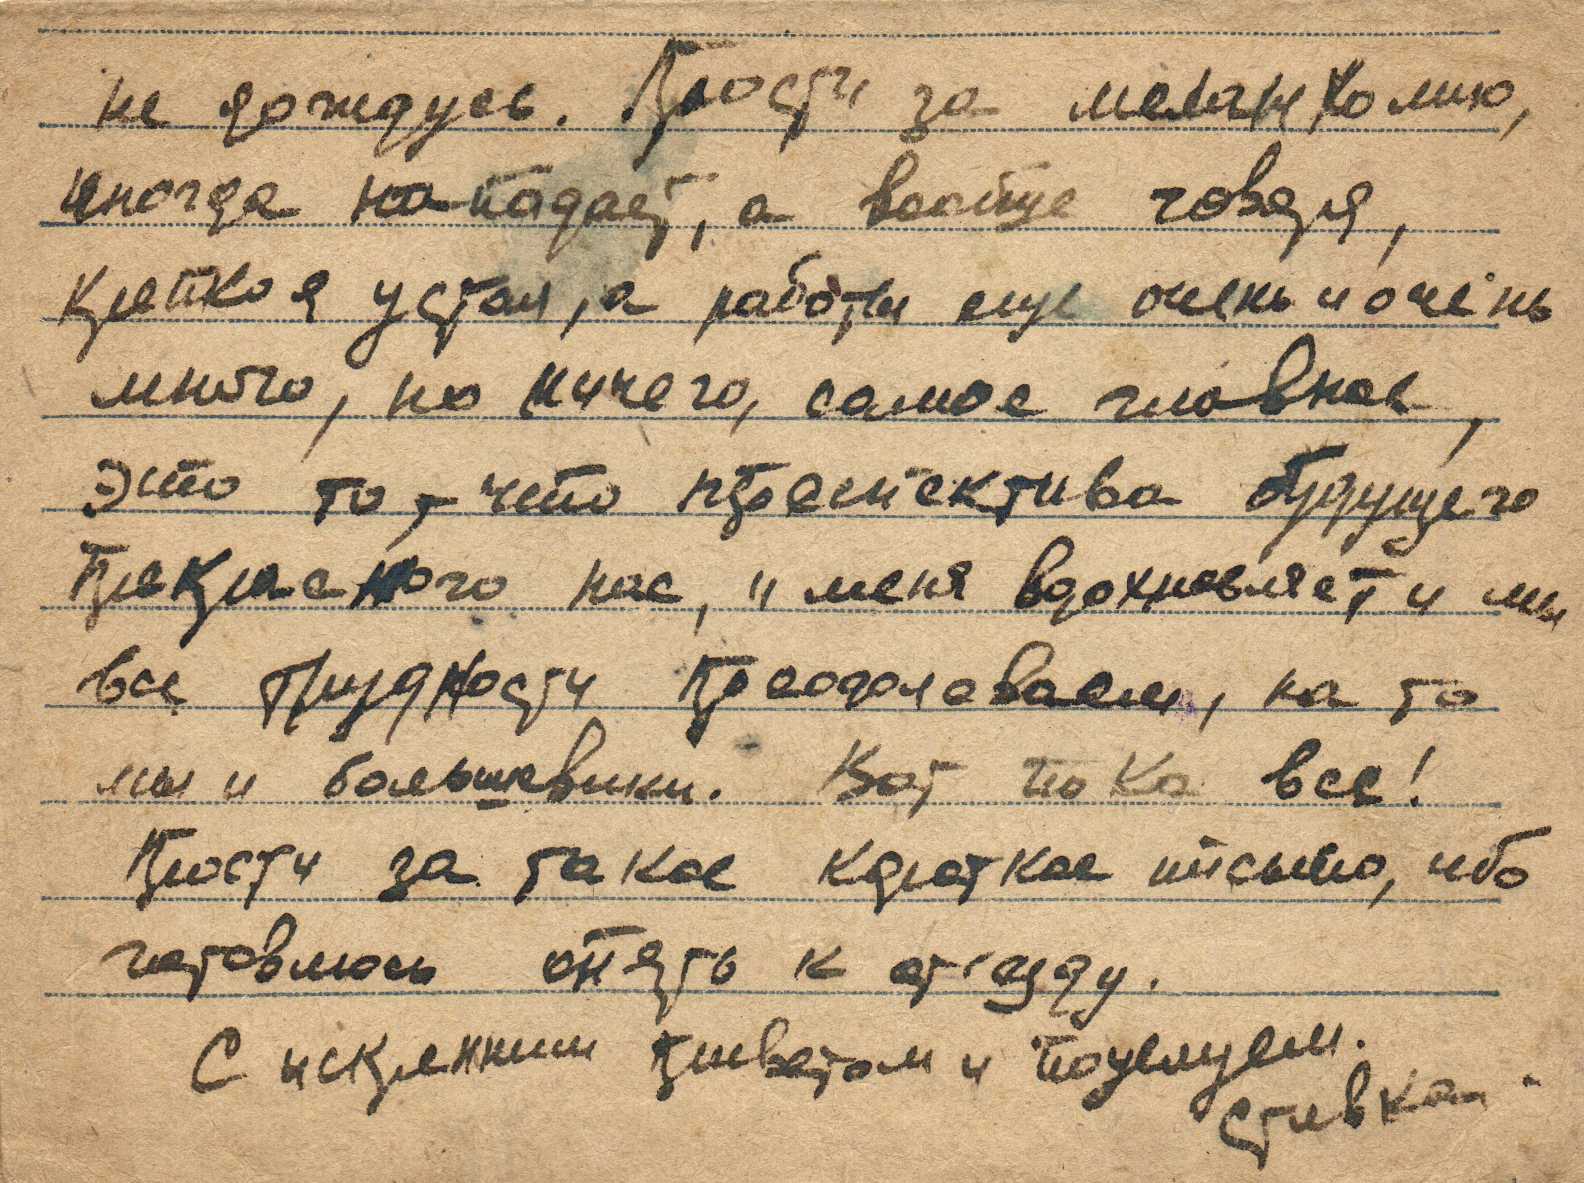 не дождусь. Прости за меланхолию,
иногда нападает, а вообще говоря,
крепко я устал, а работы еще очень и очень
много, но ничего, самое главное,
это то, что проспектива будущего
прекрасного нас, и меня вдохновляет и мы
все трудности преодолеваем, на то
мы и большевики. Вот пока все!
Прости за такое краткое письмо, ибо
готовлюсь опять к от'езду.
С искренним приветом и поцелуем.